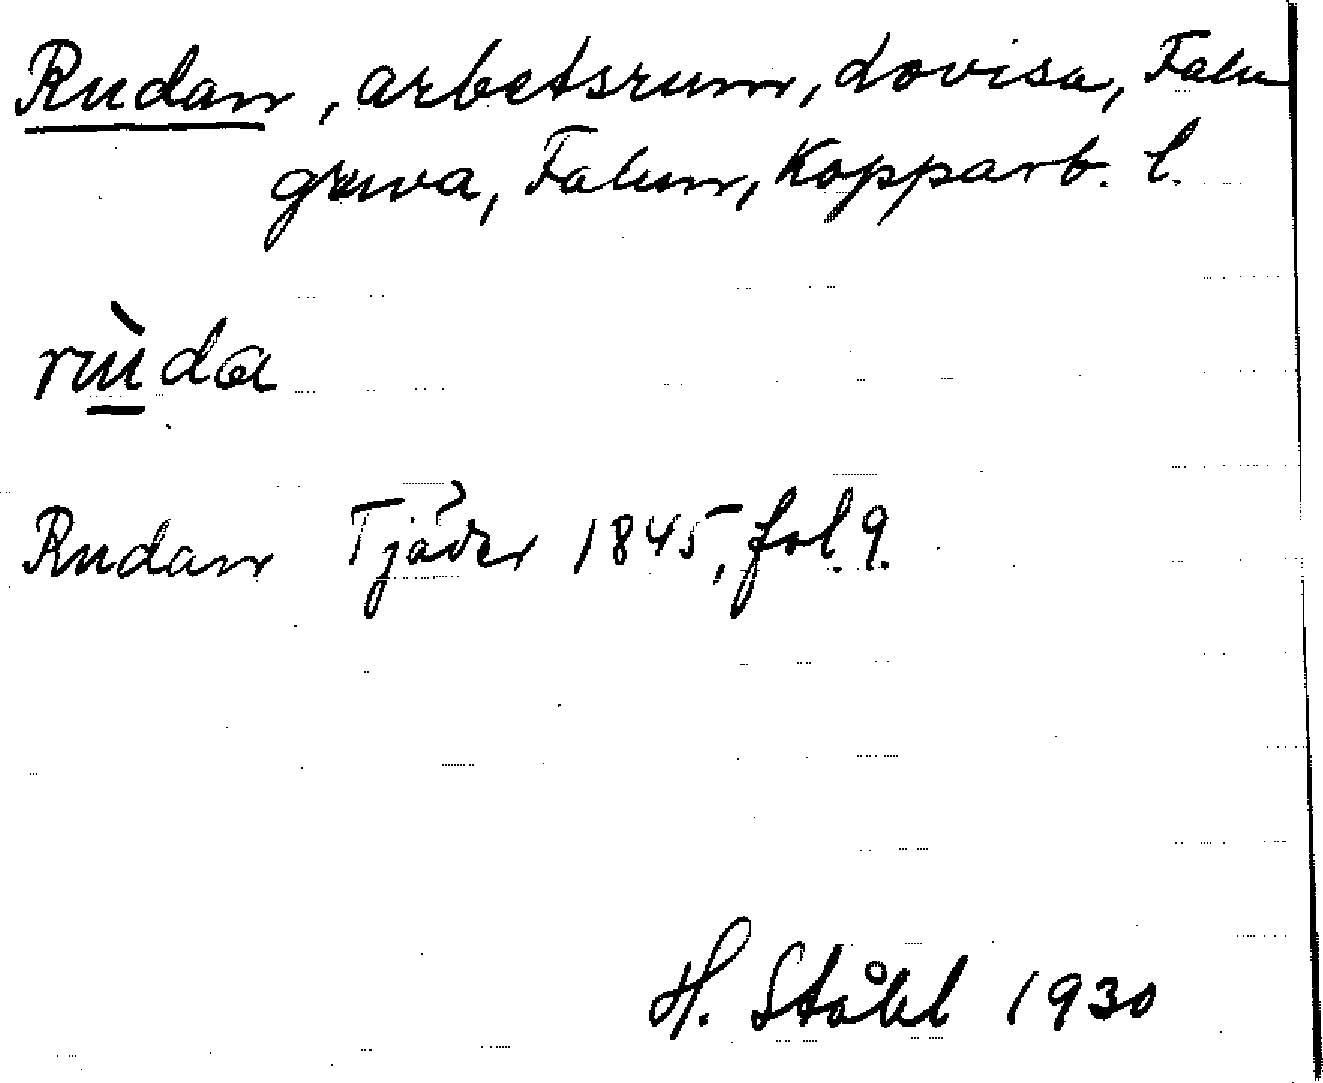 Rudan, arbetsrum, dovisa, Falu
gruva, Falun, Kopparb. l.
rùda
Rudan Tjäder 1845, fol. 9.
H. Ståhl 1930